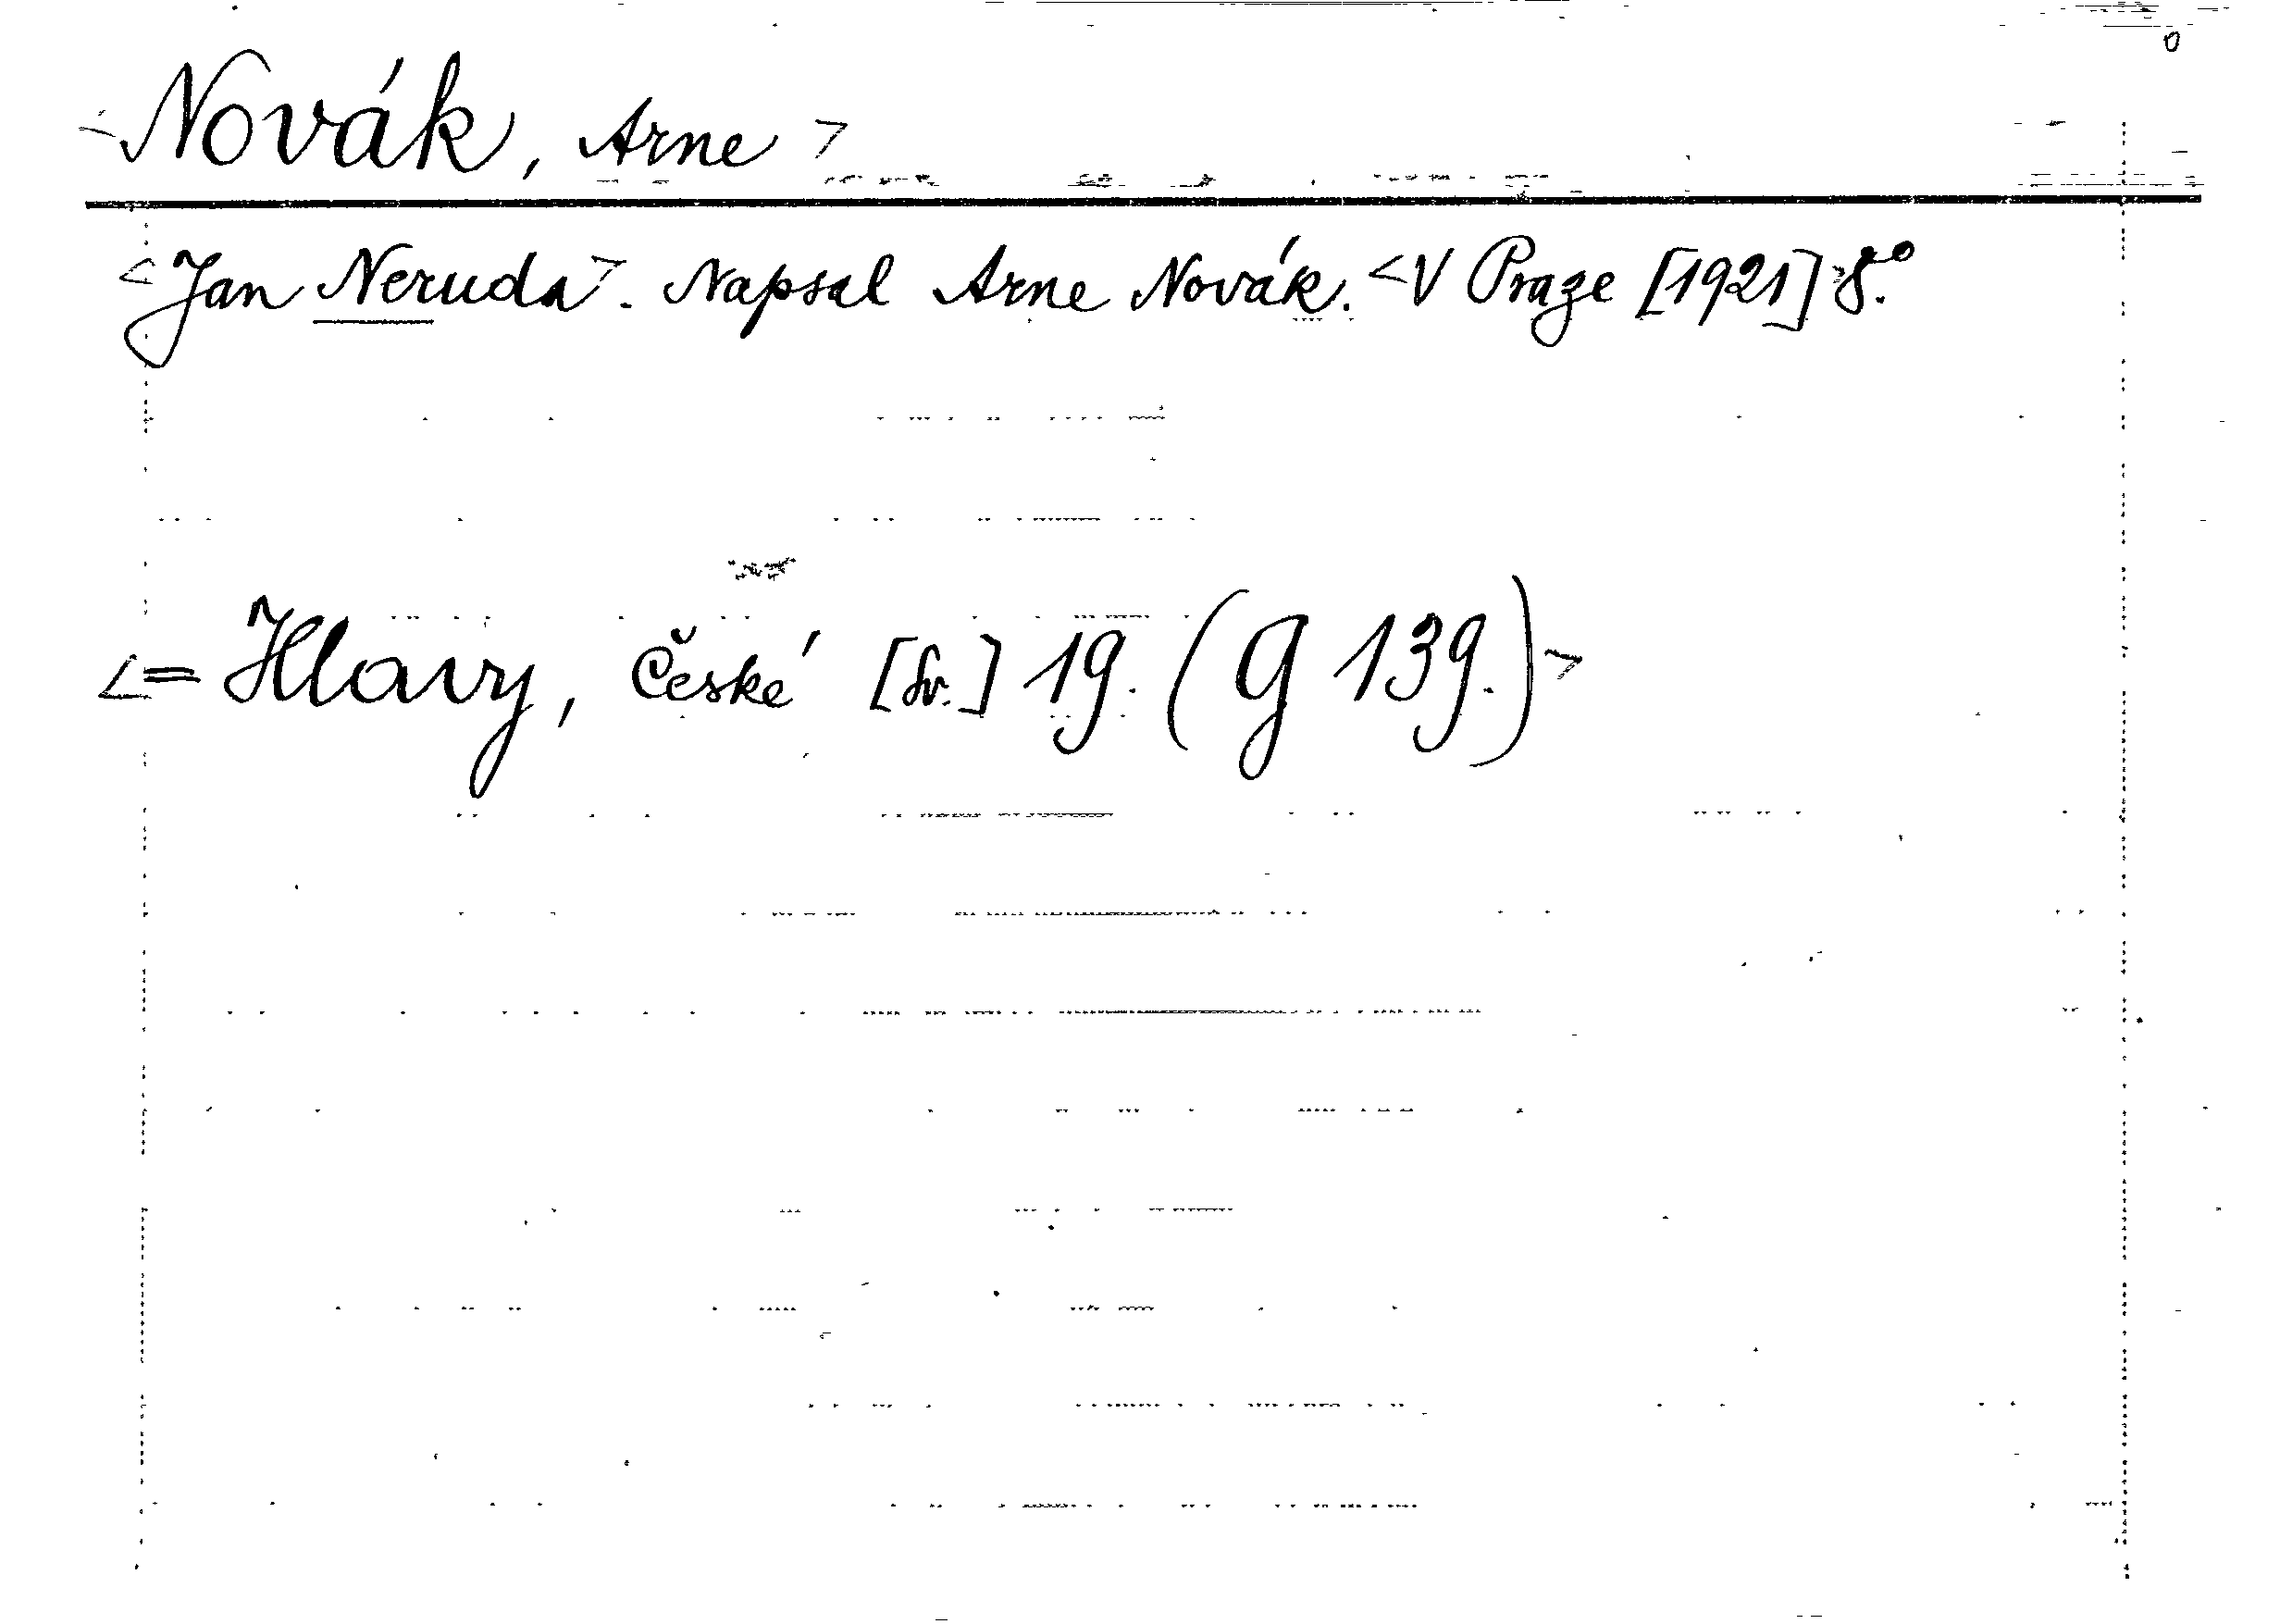 <Novák, Arne>
<Jan Neruda>. Napsal Arne Novák. <V Praze [1921] 8.°
<= Hlavy, České [sv.] 19. (G 139.)>